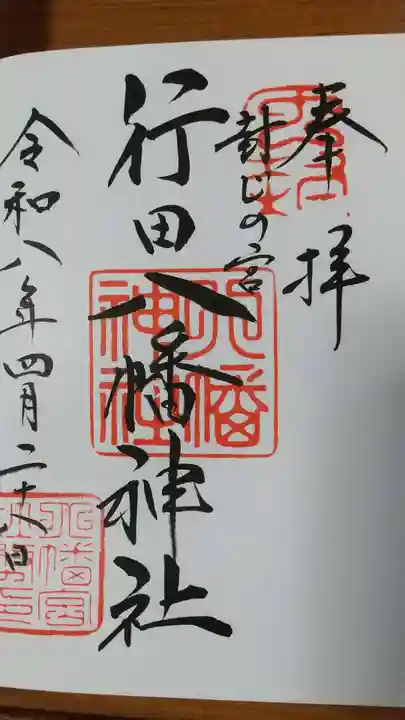 奉拝
封じの宮
行田八幡神社
令和八年四月二十八日
八幡神社